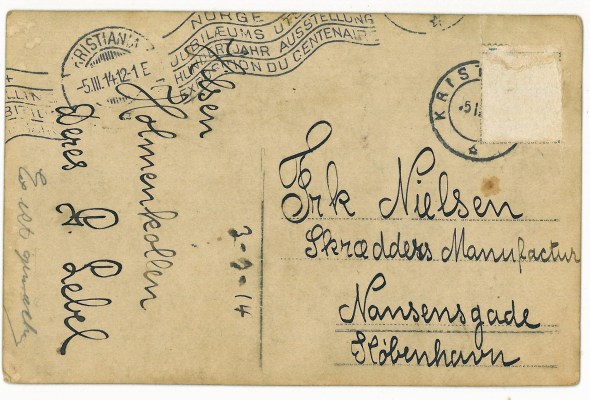 NORGE
JUBILÆUMS UTS
HUNDERTJAHR AUSSTELLUNG
EXPOSITION DU CENTENAIRE
KRISTIANIA
-5.III.14.12-1 E
KRIST
Hilsen
Holmenkollen
Deres P. Lebel
3-3-14
Frk Nielsen
Skrædders Manufactur
Nansensgade
København